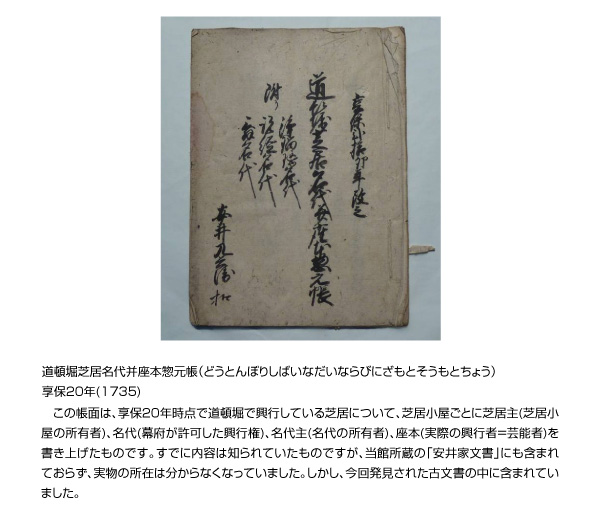 享保弐拾卯年改之
道頓堀芝居名代并座本惣元帳
附り
浄瑠璃名代
説経名代
名代
安井九兵衛
道頓堀芝居名代并座本惣元帳（どうとんぼりしばいなだいならびにざもとそうもとちょう）
享保20年(1735)
この帳面は、享保20年時点で道頓堀で興行している芝居について、芝居小屋ごとに芝居主(芝居小
屋の所有者)、名代(幕府が許可した興行権)、名代主(名代の所有者)、座本(実際の興行者=芸能者)を
書き上げたものです。すでに内容は知られていたものですが、当館所蔵の「安井家文書」にも含まれ
ておらず、実物の所在は分からなくなっていました。しかし、今回発見された古文書の中に含まれてい
ました。